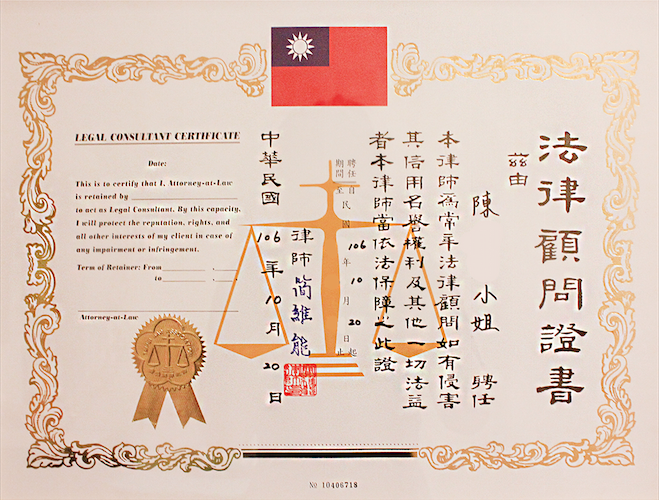 法律顧問證書
茲由
陳 小姐 聘任
本律師為常年法律顧問如有侵害
其信用名譽權利及其他一切法益
者本律師當依法保障之此證
聘任自
期間至
民國106年10月20日
起
止
律師 簡維能
中華民國106年10月20日
LEGAL CONSULTANT CERTIFICATE
Date:
This is to certify that I, Attorney-at-Law
is retained by
to act as Legal Consultant. By this capacity,
I will protect the reputation, rights, and
all other interests of my client in case of
any impairment or infringement.
Term of Retainer: From ,
to ,
Attorney-at-Law
No 10406718